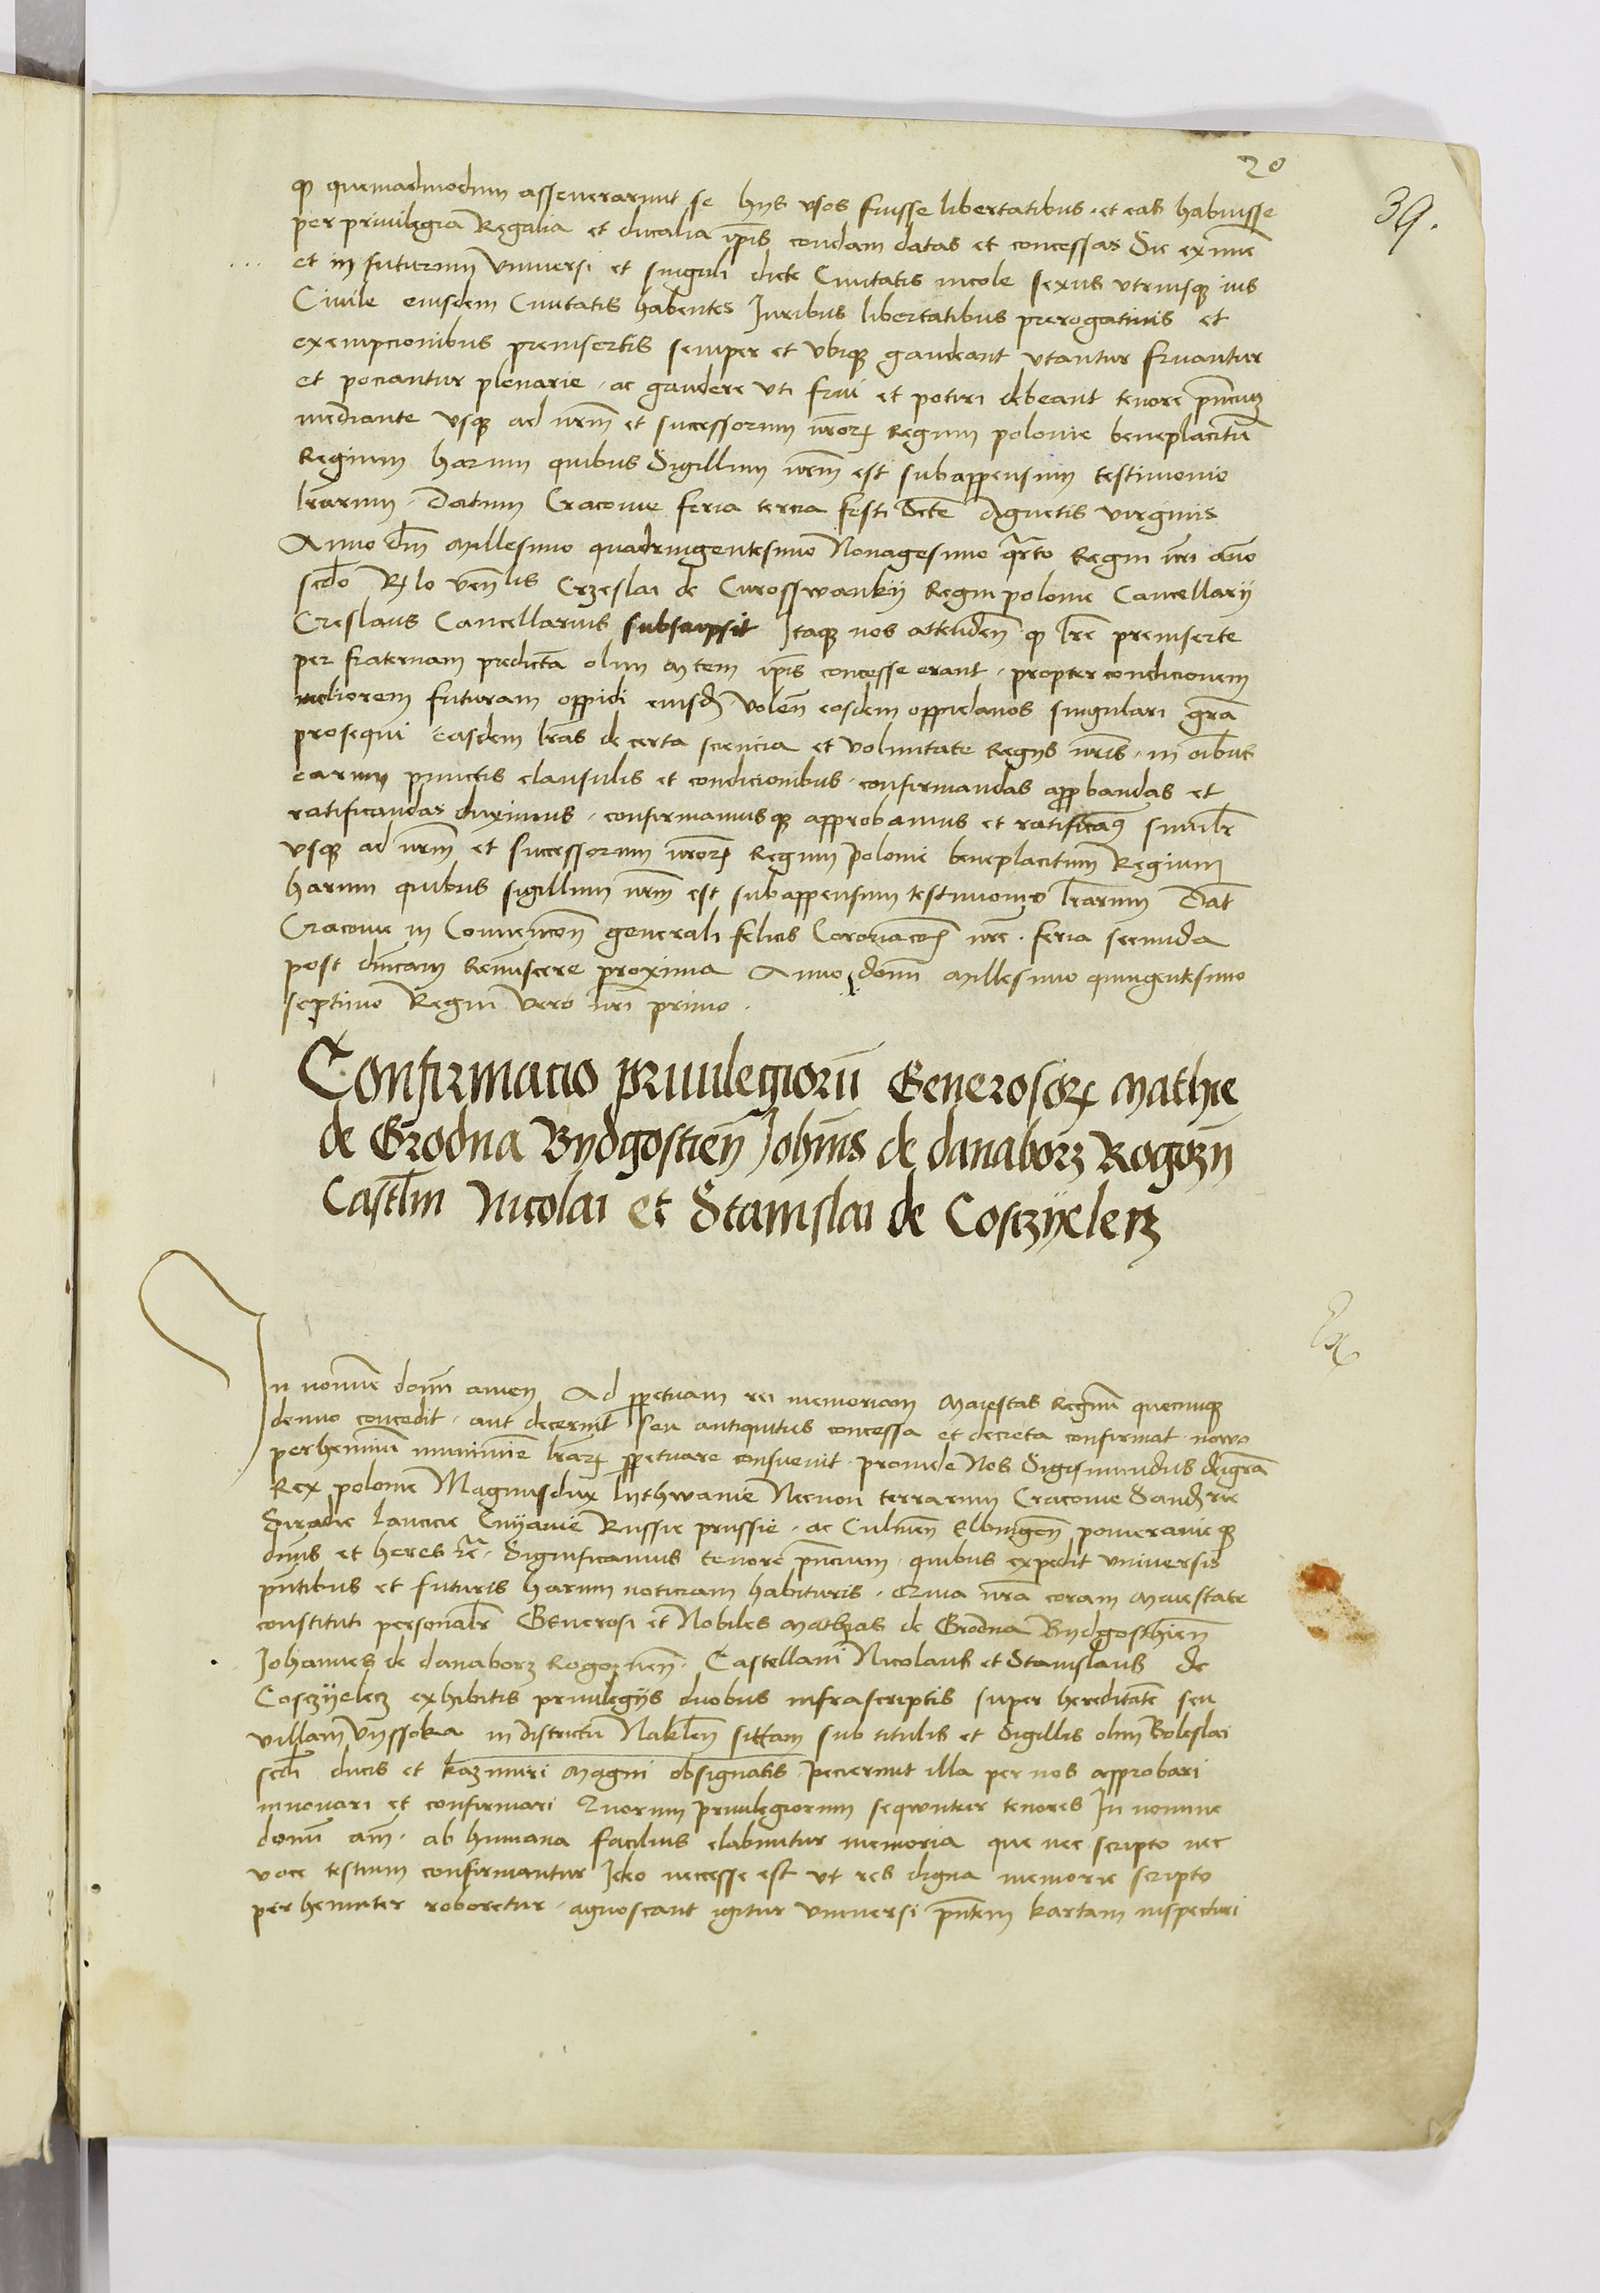 20
39.
qp quemadmodum asseverarunt se hys usos fuisse libertatibus · et eas habuisse
per privilegia Regalia et ducalia ip̄is condam datas et concessas Sic ex nunc
et in futurum universi et singuli dicte Civitatis incole sexus utriusque ius
Civile eiusdem Civitatis habentes Iuribus libertatibus prerogativis et
exempcionibus preinsertis semper et ubique gaudeant utantur fruantur
et pociantur plenarie · ac gaudere uti frui et potiri debeant tenore pn̄cium
mediante usque ad nr̄m et successorum nr̄orꝝ Regum polonie beneplacitum
Regium harum quibus Sigillum nr̄m est subappensum testimonio
lr̄arum · Datum Cracovie feria tercia festi Scte Agnetis virginis
Anno dn̄i Millesimo quadringentesimo Nonagesimo q̄rto Regni nr̄i āno
scd̄o Rꝫlo ven̄lis Crzeslai de Curosswanky Regni polonie Cancellary
Creslaus Cancellarius subscripsit Itaque nos attendeñ qp lr̄e preinserte
per fraternam predictā olim Mtem ip̄is concesse erant · propter condicionem
meliorem futuram oppidi eiusd̄ · voleñ eosdem oppidanos singulari gr̄a
prosequi Easdem lr̄as de certa sciencia et voluntate Regys nr̄is · in oībus
earum punctis clausulis et condicionibus · confirmandas appbandas et
ratificandas duximus · confirmamusque approbamus et ratificāꝰ similr̄
usque ad nr̄m et successorum nr̄orꝝ Regum Polonie beneplacitum Regium
harum quibus sigillum nr̄m est subappensum testimonio lr̄arum Dat̄
Cracovie in Convencōn generali felicis Coronacōis nr̄e · feria secunda
post dn̄icam Reminiscere proxima Anno domī Millesimo quingentesimo
septimo Regni vero nr̄i primo ·
Confirmacio privilegiorū Generosorꝝ Mathie
de Grodna Bydgostień Joh̄nis de danaborz Rogozn̄
Castl̄m Nicolai et Stanislai de Cosczyelecz
In nomīe domī amen Ad ppetuam rei memoriam Maiestas Regnū quecunque
denuo concedit · aut decernit seu antiquitus concessa et decreta confirmat · novo
perhennium munimīe lr̄arꝝ ppetuare consuevit · proinde Nos Sigismundus deigr̄a
Rex polonie Magnusdux lythwanie Necnon terrarum Cracovie Sand̄rie
Siradie lancicie Cuyavie Russie prussie · ac Culmeñ Elbingeñ pomeranieque
dn̄s et heres zc̄ · Significamus tenore pn̄cium · quibus expedit universis
pn̄tibus et futuris harum noticiam habituris · Quia nr̄a coram Maiestate
constituti personalr̄ Generosi et Nobiles Mathias de Grodna Bydgosthień
Johannes de danaborz Rogoznen̄ · Castellani Nicolaus et Stanislaus de
Cosczyelecz exhibitis privilegys duobus infrascriptis super hereditate seu
villam Vyssoka in districtu Nakleñ sittam sub titulis et Sigillis olim Boleslai
scdi ducis et kazimiri Magni obsignatis Pecierunt illa per nos approbari
innovari et confirmari Quorum privilegiorum sequntur tenores In nomine
domī am̄ · ab humana facilius elabuntur memoria que nec scripto nec
voce testium confirmantur Ideo necesse est ut res digna memorie scripto
perhenniter roboretur · agnoscant igitur universi pn̄tem kartam inspecturi